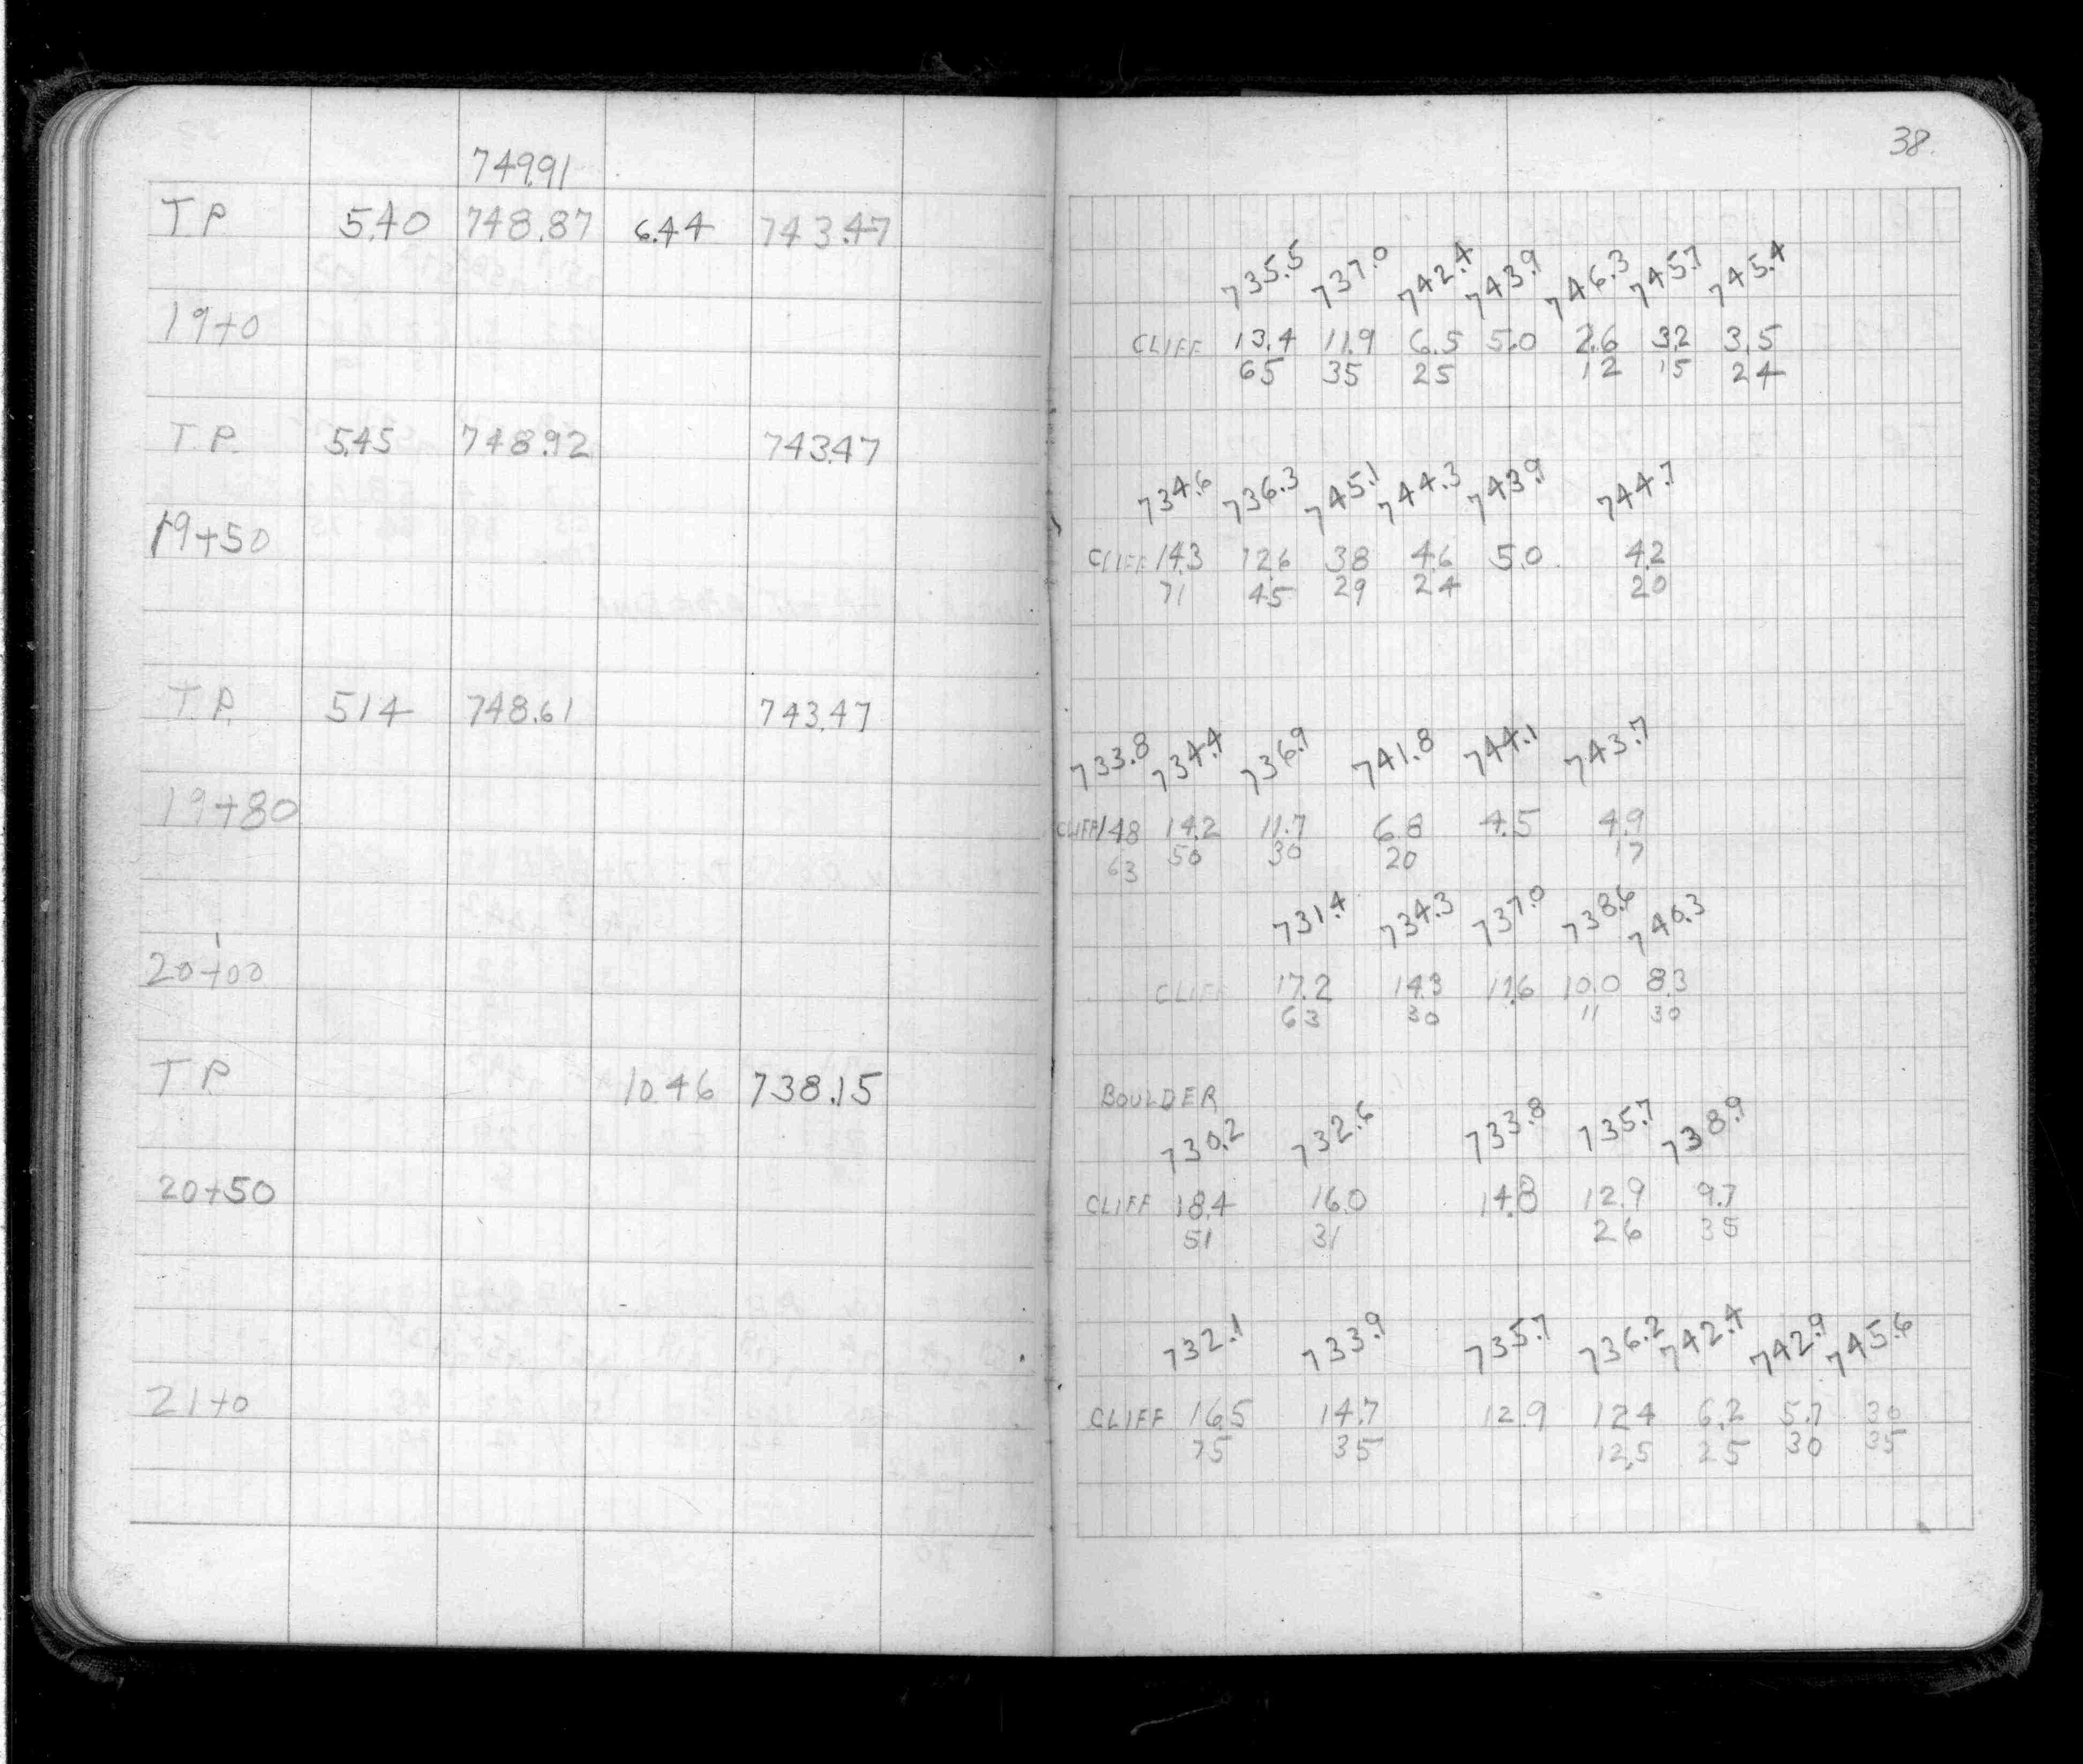 38.
749.91
T.P. 5.40 748.87 6.44 743.47
735.5 737.0 742.4 743.9 746.3 745.7 745.4
19+0 CLIFF 13.4 11.9 6.5 5.0 2.6 3.2 3.5
65 35 25 12 15 24
T.P. 5.45 748.92 743.47
734.6 736.3 745.1 744.3 743.9 744.7
19+50 CLIFF 14.3 12.6 3.8 4.6 5.0 4.2
71 45 29 24 20
T.P. 5.14 748.61 743.47
733.8 734.4 736.9 741.8 744.1 743.7
19+80 CLIFF 14.8 14.2 11.7 6.8 4.5 4.9
63 50 30 20 17
731.4 734.3 737.0 738.6 740.3
20+00 CLIFF 17.2 14.3 11.6 10.0 8.3
63 30 11 30
T.P. 10.46 738.15 BOULDER
730.2 732.6 733.8 735.7 738.9
20+50 CLIFF 18.4 16.0 14.8 12.9 9.7
51 31 26 35
732.1 733.9 735.7 736.2 742.4 742.9 745.6
21+0 CLIFF 16.5 14.7 12.9 12.4 6.2 5.7 3.0
75 35 12.5 25 30 35